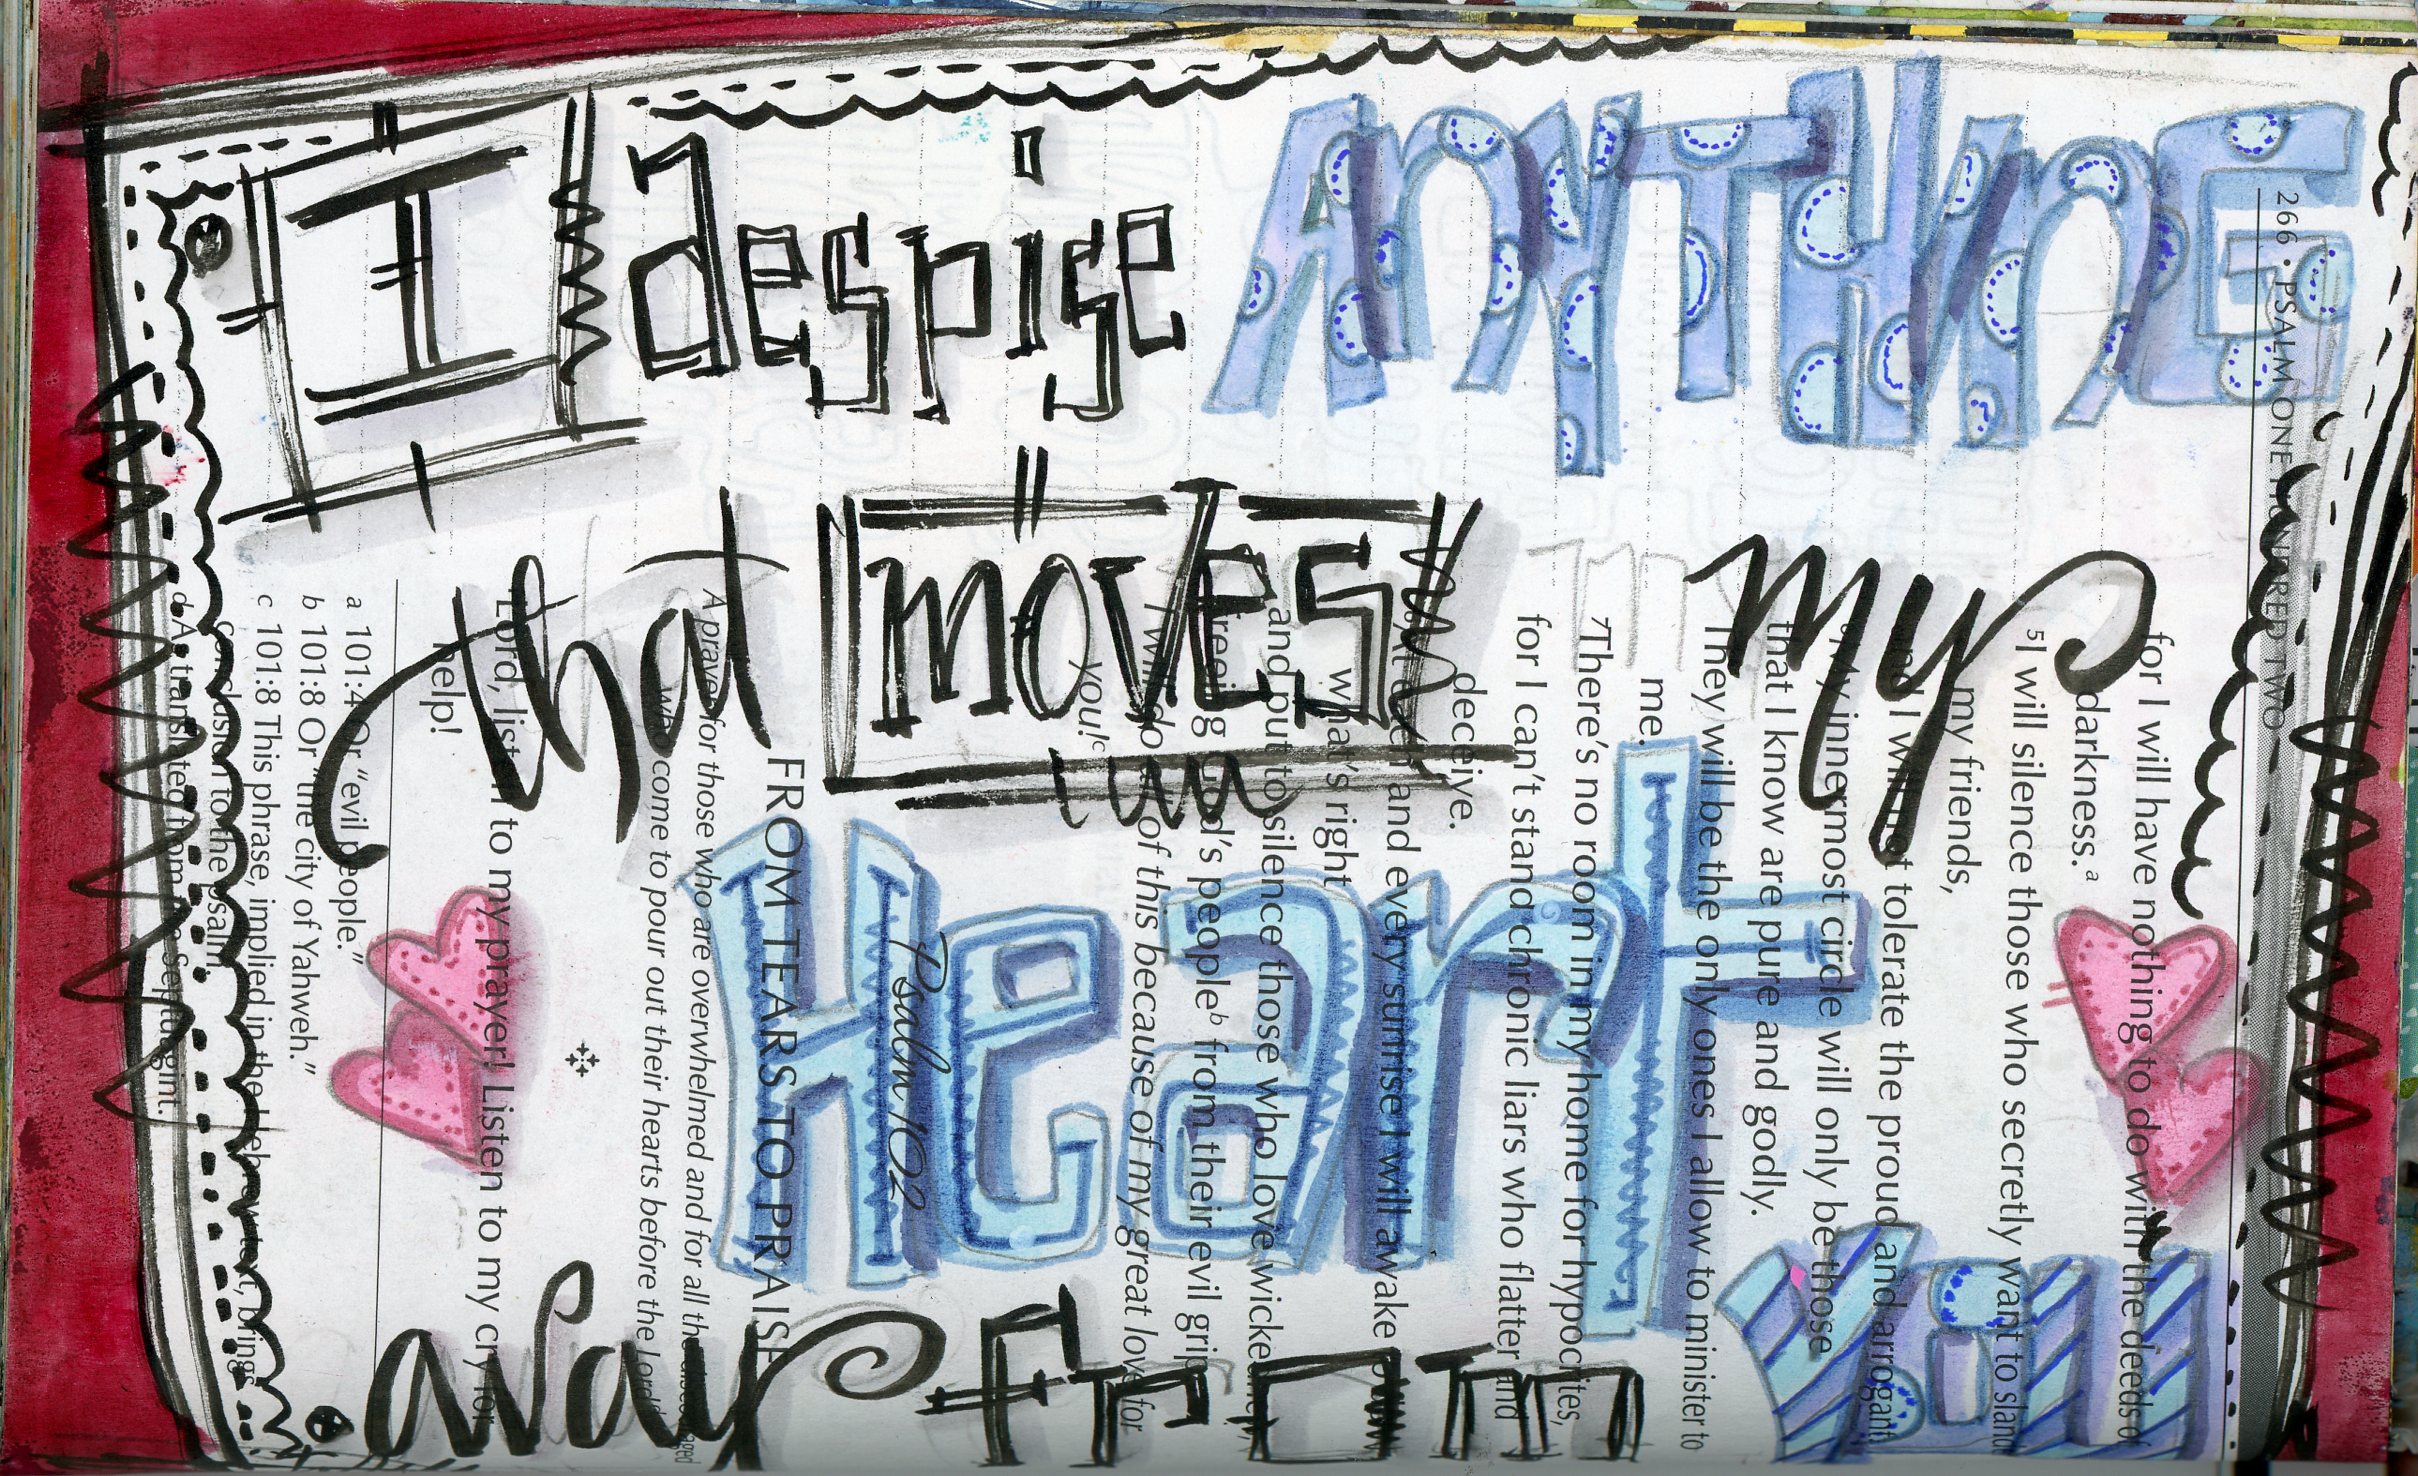 I despise ANYTHinG
that moves my
Heart
away from You
266 · PSALM ONE HUNDRED TWO
for I will have nothing to do with the deeds of
darkness.ᵃ
⁵I will silence those who secretly want to
my friends,
and I will not tolerate the proud and arrogant.
⁶My innermost circle will only be those
that I know are pure and godly.
They will be the only ones I allow to minister to
me.
⁷There's no room in my home for hypocrites,
for I can't stand chronic liars who flatter and
deceive.
each and every sunrise I will awake
what's right
and put to silence those who love wickedness,
freeing God's peopleᵇ from their evil grip
I will do all of this because of my great love for
you!ᶜ
Psalm 102
FROM TEARS TO PRAISE
A prayer for those who are overwhelmed and for all the discouraged
who come to pour out their hearts before the Lord
Lord, listen to my prayer! Listen to my cry for
help!
a 101:4 Or “evil people.”
b 101:8 Or “the city of Yahweh.”
c 101:8 This phrase, implied in the Hebrew text, brings
conclusion to the psalm.
d As translated from the Septuagint.